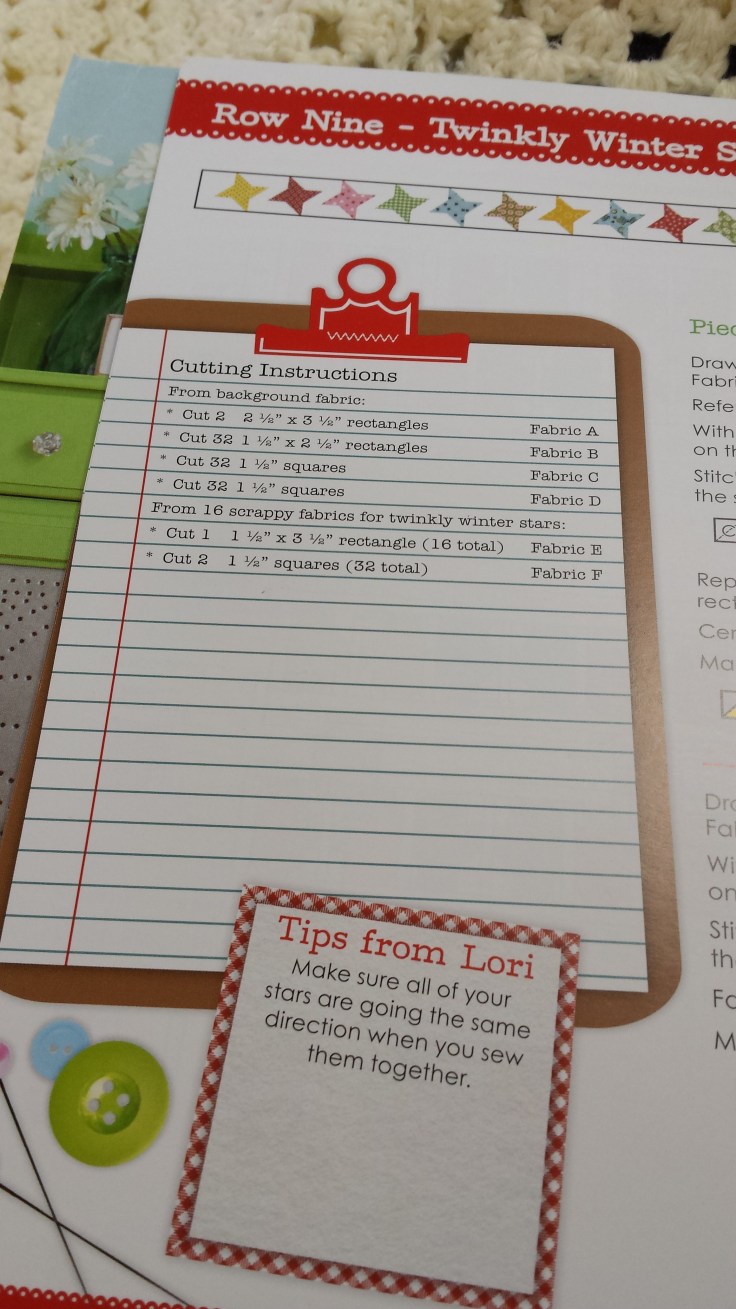 Row Nine - Twinkly Winter S
Cutting Instructions
From background fabric:
* Cut 2 2 ½" x 3 ½" rectangles Fabric A
* Cut 32 1 ½" x 2 ½" rectangles Fabric B
* Cut 32 1 ½" squares Fabric C
* Cut 32 1 ½" squares Fabric D
From 16 scrappy fabrics for twinkly winter stars:
* Cut 1 1 ½" x 3 ½" rectangle (16 total) Fabric E
* Cut 2 1 ½" squares (32 total) Fabric F
Tips from Lori
Make sure all of your
stars are going the same
direction when you sew
them together.
Piec
Draw
Fabri
Refe
With
on th
Stitc
the s
Rep
rect
Cer
Ma
Dra
Fal
Wi
on
Sti
the
Fo
M